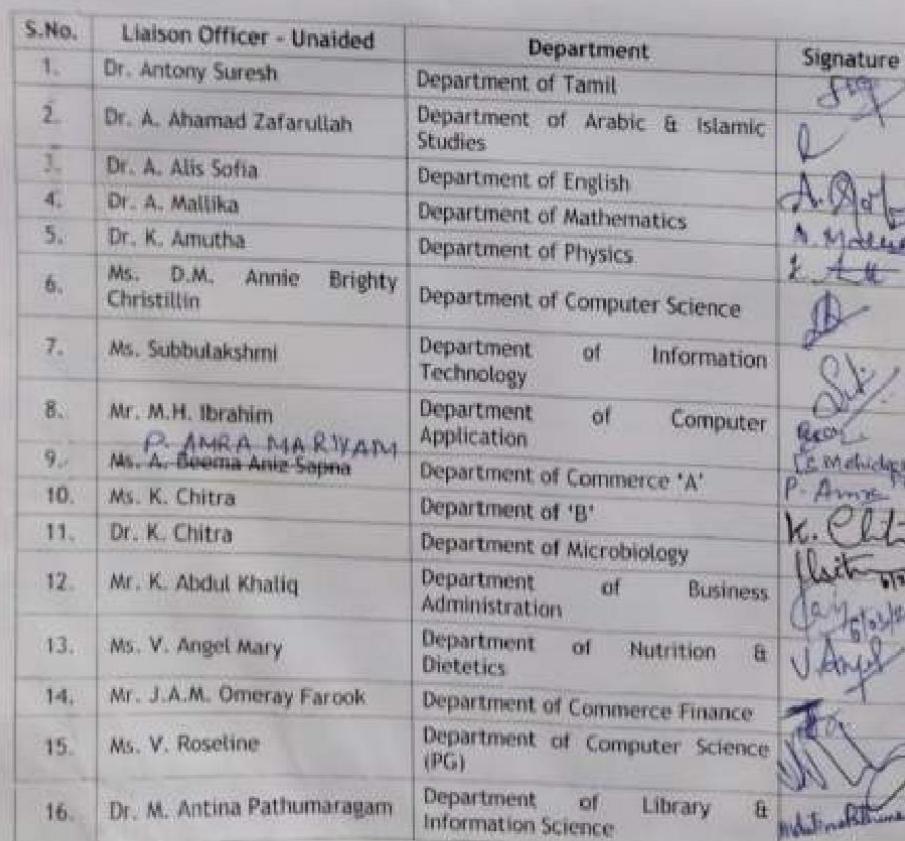 S.No. Liaison Officer - Unaided Department Signature
1. Dr. Antony Suresh Department of Tamil
2. Dr. A. Ahamad Zafarullah Department of Arabic & Islamic
Studies
3. Dr. A. Alis Sofia Department of English
4. Dr. A. Mallika Department of Mathematics
5. Dr. K. Amutha Department of Physics
6. Ms. D.M. Annie Brighty
Christillin Department of Computer Science
7. Ms. Subbulakshmi Department of Information
Technology
8. Mr. M.H. Ibrahim Department of Computer
Application
P. AMRA MARIYAM
9. Ms. A. Beema Aniz Sapna Department of Commerce 'A' P. Amra
10. Ms. K. Chitra Department of 'B'
11. Dr. K. Chitra Department of Microbiology
12. Mr. K. Abdul Khaliq Department of Business
Administration
13. Ms. V. Angel Mary Department of Nutrition &
Dietetics
14. Mr. J.A.M. Omeray Farook Department of Commerce Finance
15. Ms. V. Roseline Department of Computer Science
(PG)
16. Dr. M. Antina Pathumaragam Department of Library &
Information Science